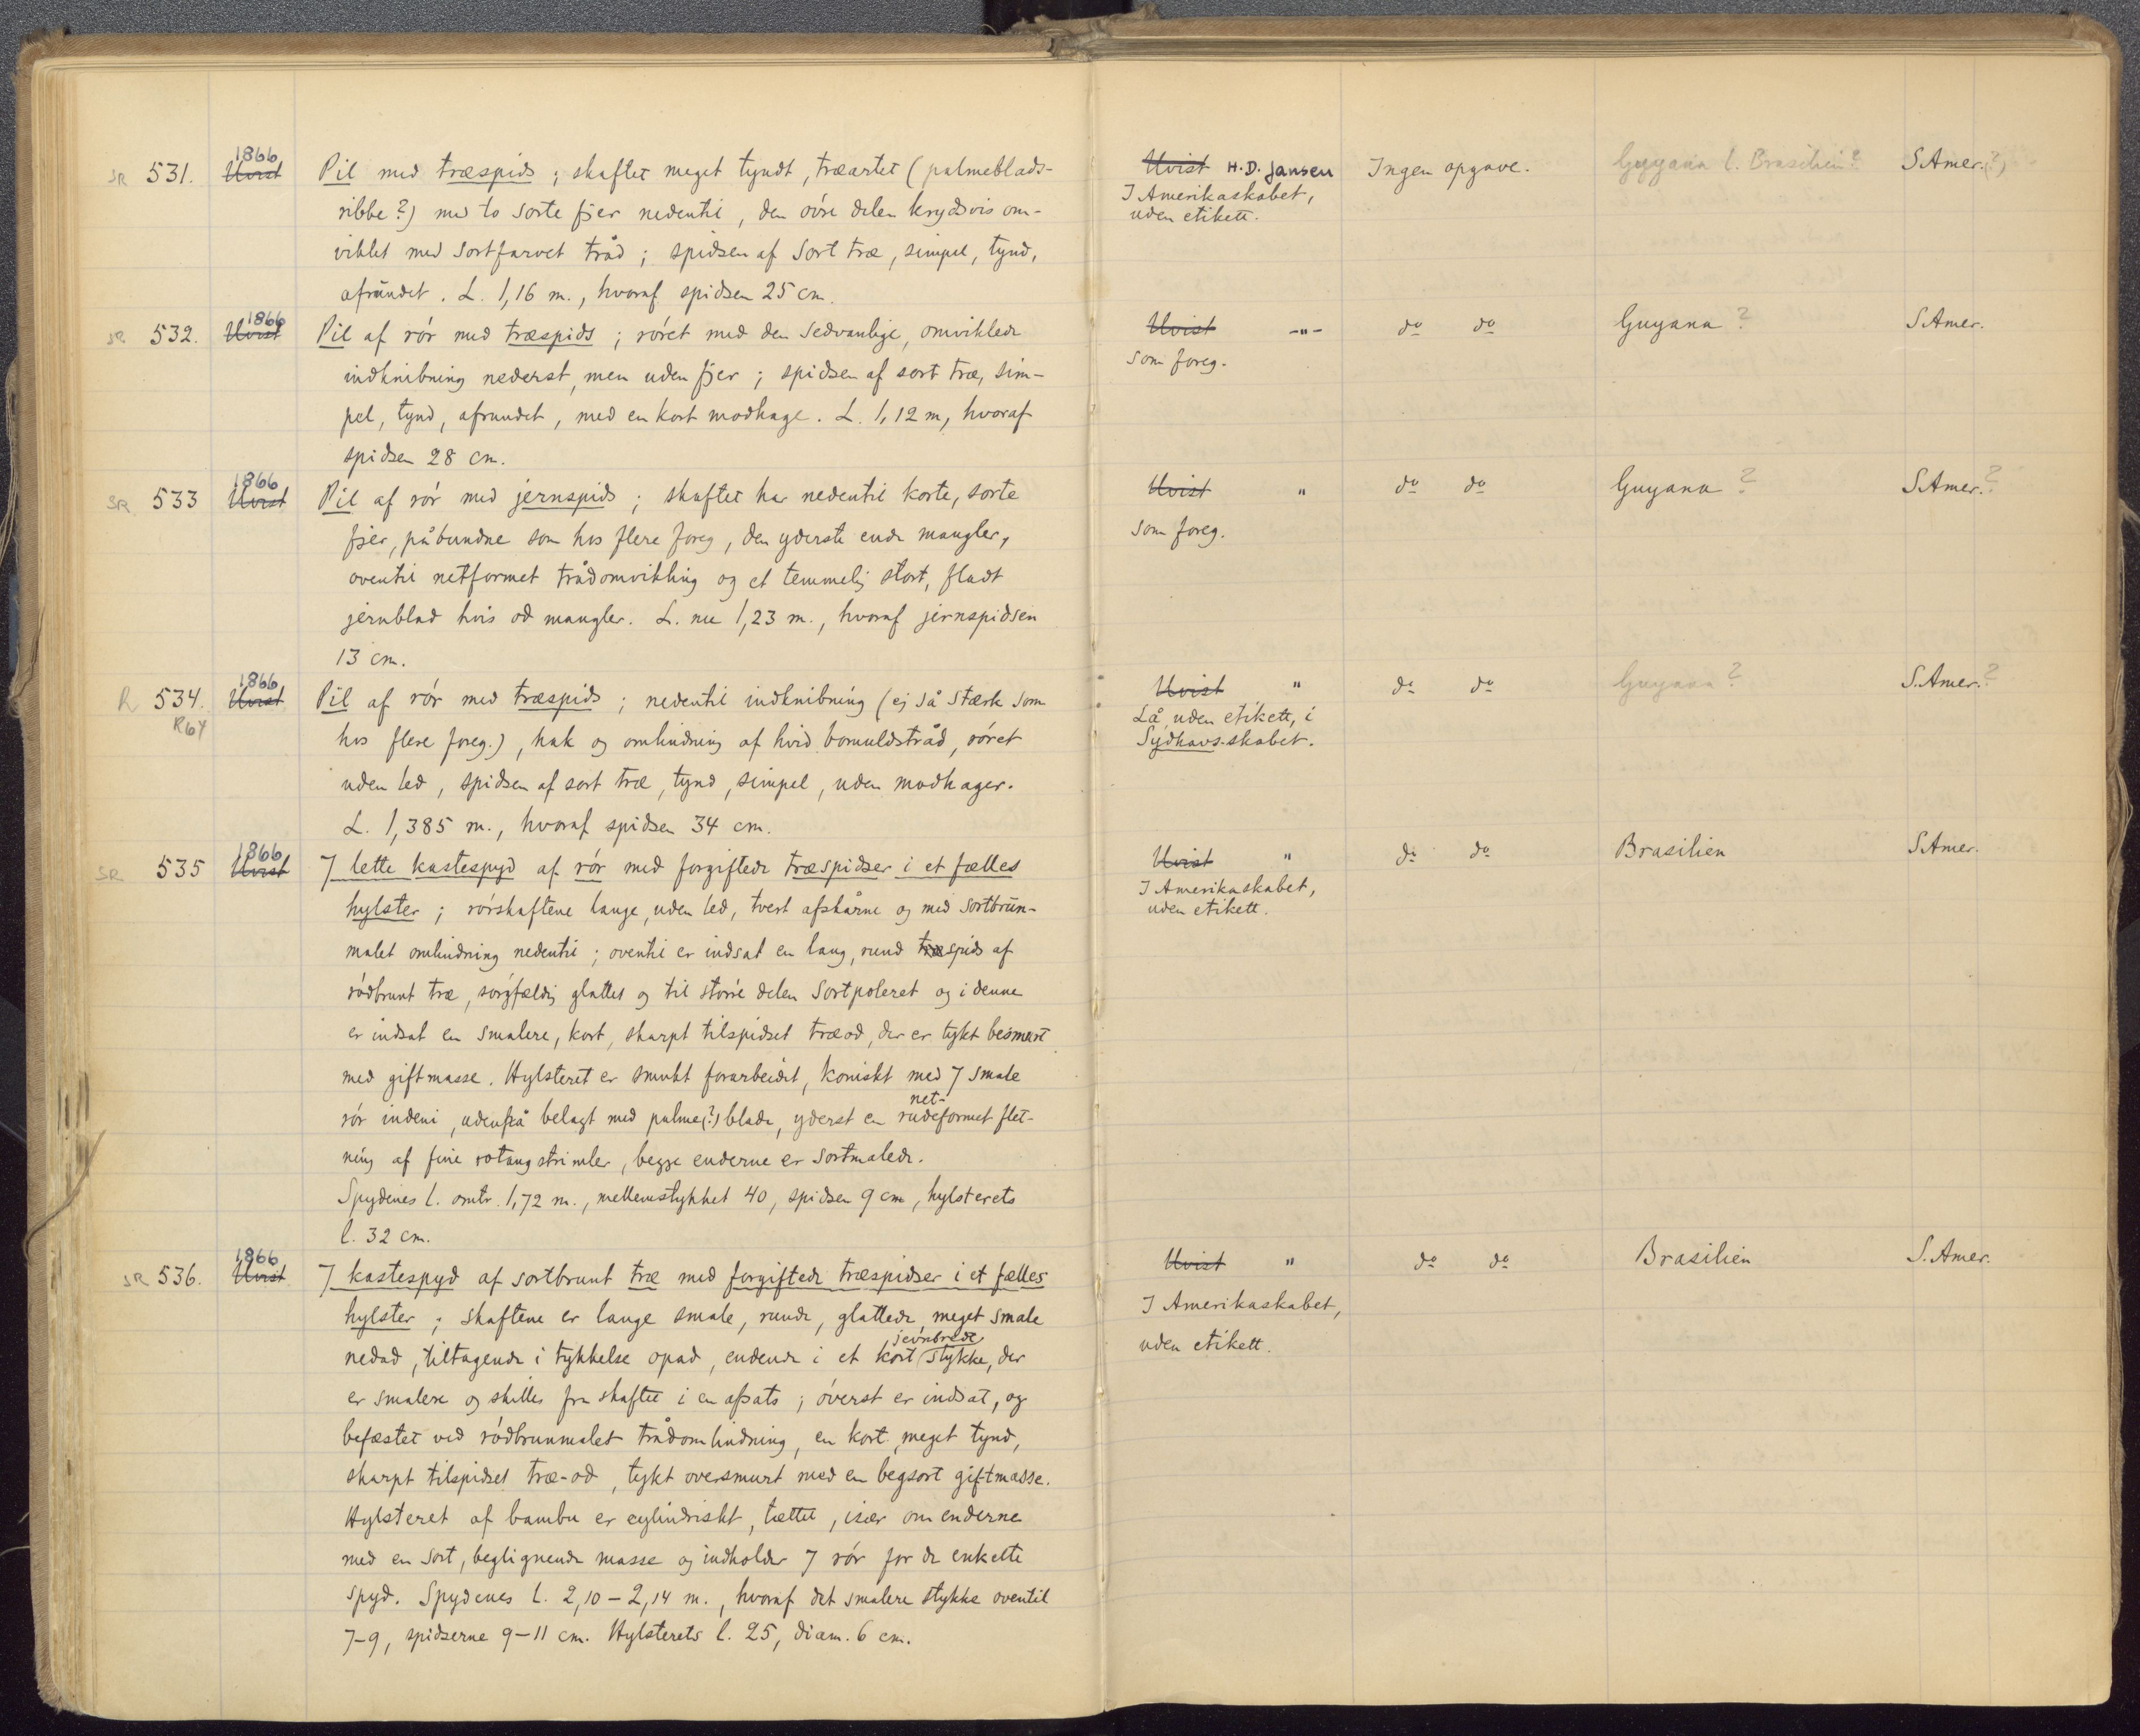 SR 531. 1866 Uvist Pil med træspids ; skaftet meget tyndt, træartet (palmeblads-
ribbe?) med to sorte fjer nedentil, den øvre delen krydsvis om-
viklet med sortfarvet tråd ; spidsen af sort træ, simpel, tynd,
afrundet. L. 1,16 m., hvoraf spidsen 25 cm.
Uvist H.D. Jansen Ingen opgave. Guyana l. Brasilien? S.Amer.(?)
I Amerikaskabet,
uden etikett.
SR 532. 1866 Uvist Pil af rør med træspids ; røret med den sedvanlige, omviklede
indknibning nederst, men uden fjer ; spidsen af sort træ, sim-
pel, tynd, afrundet, med en kort modhage. L. 1,12 m, hvoraf
spidsen 28 cm.
Uvist -"- do do Guyana ? S.Amer.
som foreg.
SR 533 1866 Uvist Pil af rør med jernspids ; skaftet har nedentil korte, sorte
fjer, påbundne som hos flere foreg, den yderste ende mangler,
oventil netformet trådomvikling og et temmelig stort, fladt
jernblad hvis od mangler. L. nu 1,23 m., hvoraf jernspidsen
13 cm.
Uvist " do do Guyana ? S.Amer.?
som foreg.
R 534. 1866 Uvist Pil af rør med træspids ; nedentil indknibning (ej så stærk som
R64
hos flere foreg.), hak og omlindning af hvid bomuldstråd, røret
uden led, spidsen af sort træ, tynd, simpel, uden modhager.
L. 1,385 m., hvoraf spidsen 34 cm.
Uvist " do do Guyana ? S.Amer.?
Lå, uden etikett, i
Sydhavs-skabet.
SR 535 1866 Uvist 7 lette kastespyd af rør med forgiftede træspidser i et fælles
hylster ; rørskaftene lange, uden led, tvert afskårne og med sortbrun-
malet omlindning nedentil ; oventil er indsat en lang, rund træspids af
rødbrunt træ, sørgfældig glattet og til større delen sortpoleret og i denne
er indsat en smalere, kort, skarpt tilspidset træod, der er tykt besmurt
med giftmasse. Hylsteret er smukt forarbeidet, koniskt med 7 smale
rør indeni, udenpå belagt med palme(?)blade, yderst en net-rudeformet flet-
ning af fine rotangstrimler, begge enderne er sortmalede.
Spydenes l. omtr. 1,72 m., mellemstykket 40, spidsen 9 cm, hylsterets
l. 32 cm.
Uvist " do do Brasilien S.Amer.
I Amerikaskabet,
uden etikett.
SR 536. 1866 Uvist 7 kastespyd af sortbrunt træ med forgiftede træspidser i et fælles
hylster ; skaftene er lange smale, runde, glattede, meget smale
nedad, tiltagende i tykkelse opad, endende i et kort jevnbredt stykke, der
er smalere og skilles fra skaftet i en afsats ; øverst er indsat, og
befæstet ved rødbrunmalet trådomlindning, en kort, meget tynd,
skarpt tilspidset træ-od, tykt oversmurt med en begsort giftmasse.
Hylsteret af bambu er cylindriskt, tættet, især om enderne
med en sort, beglignende masse og indholder 7 rør for de enkelte
spyd. Spydenes l. 2,10 – 2,14 m., hvoraf det smalere stykke oventil
7–9, spidserne 9–11 cm. Hylsterets l. 25, diam. 6 cm.
Uvist " do do Brasilien S.Amer.
I Amerikaskabet,
uden etikett.